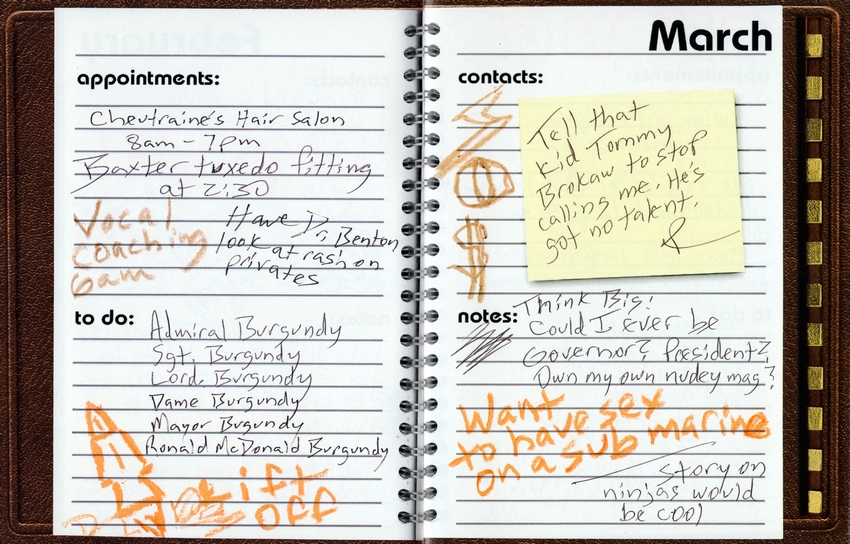 appointments:
Chevtraine's Hair Salon
8am - 7pm
Baxter tuxedo fitting
at 2:30
Vocal
coaching
6am
Have Dr. Benton
look at rash on
privates
to do:
Admiral Burgundy
Sgt. Burgundy
Lord. Burgundy
Dame Burgundy
Mayor Bugundy
Ronald McDonald Burgundy
Lift
OFF
March
contacts:
Tell that
kid Tommy
Brokaw to stop
calling me. He's
got no talent.
R
notes:
Think Big!
Could I Ever be
Governor? President?
Own my own nudey mag?
Want
to have sex
on a submarine
Story on
ninjas would
be cool